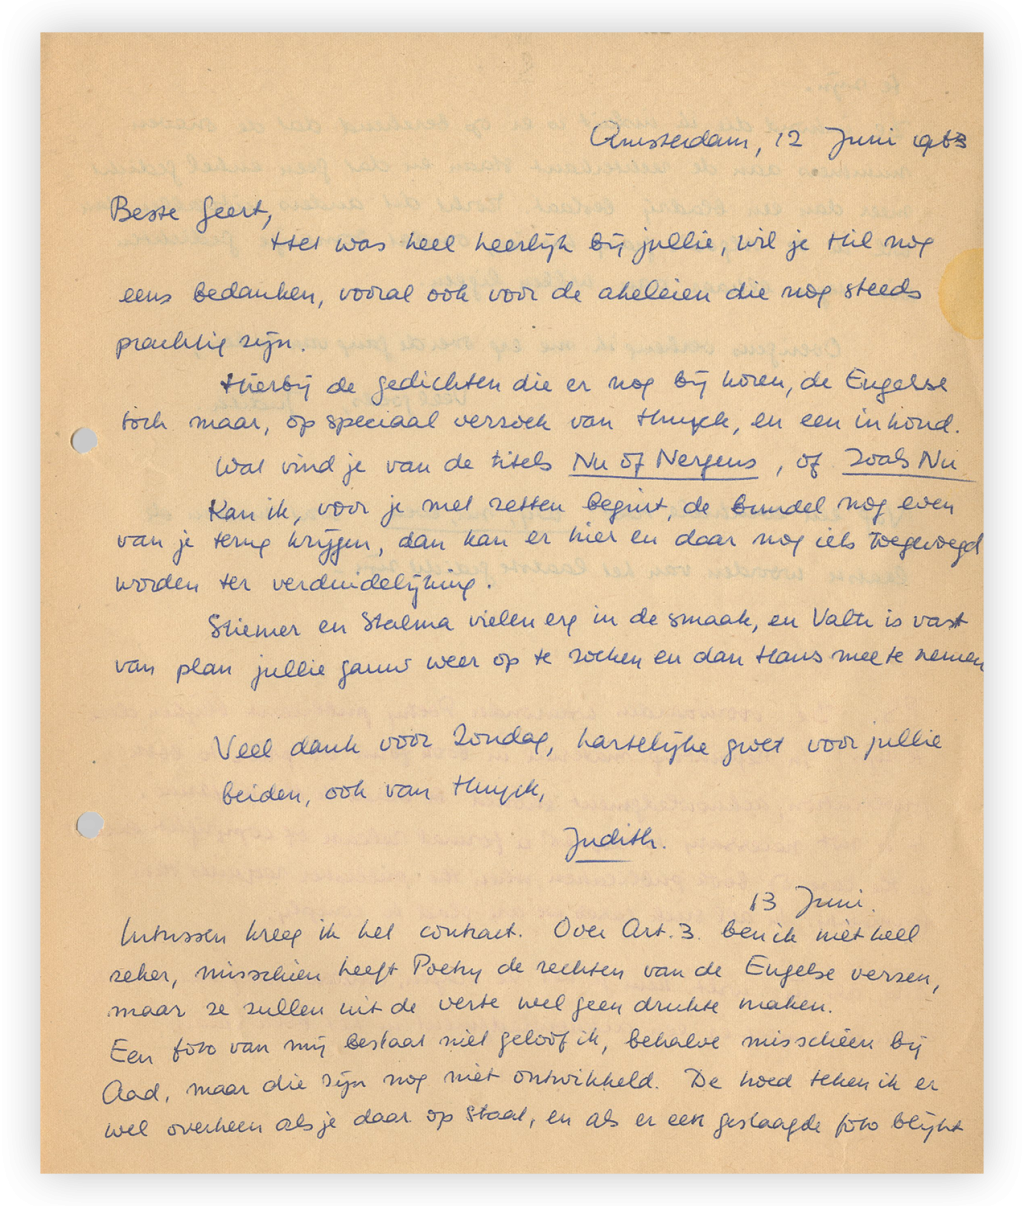 Amsterdam, 12 Juni 1963
Beste Geert,
Het was heel heerlijk bij jullie, wil je Hil nog
eens bedanken, vooral ook voor de akeleien die nog steeds
prachtig zijn.
Hierbij de gedichten die er nog bij horen, de Engelse
toch maar, op speciaal verzoek van Huyck, en een inhoud.
Wat vind je van de titels Nu of Nergens, of Zoals Nu
Kan ik, voor je met zetten begint, de bundel nog even
van je terug krijgen, dan kan er hier en daar nog iets toegevoegd
worden ter verduidelijking.
Stiemer en Stalma vielen erg in de smaak, en Valti is vast
van plan jullie gauw weer op te zoeken en dan Hans mee te nemen
Veel dank voor Zondag, hartelijke groet voor jullie
beiden, ook van Huyck,
Judith.
13 Juni.
Intussen kreeg ik het contract. Over Art. 3. ben ik niet heel
zeker, misschien heeft Poetry de rechten van de Engelse verzen,
maar ze zullen uit de verte wel geen drukte maken.
Een foto van mij bestaat niet geloof ik, behalve misschien bij
Aad, maar die zijn nog niet ontwikkeld. De hoed teken ik er
wel overheen als je daar op staat, en als er een geslaagde foto blijkt